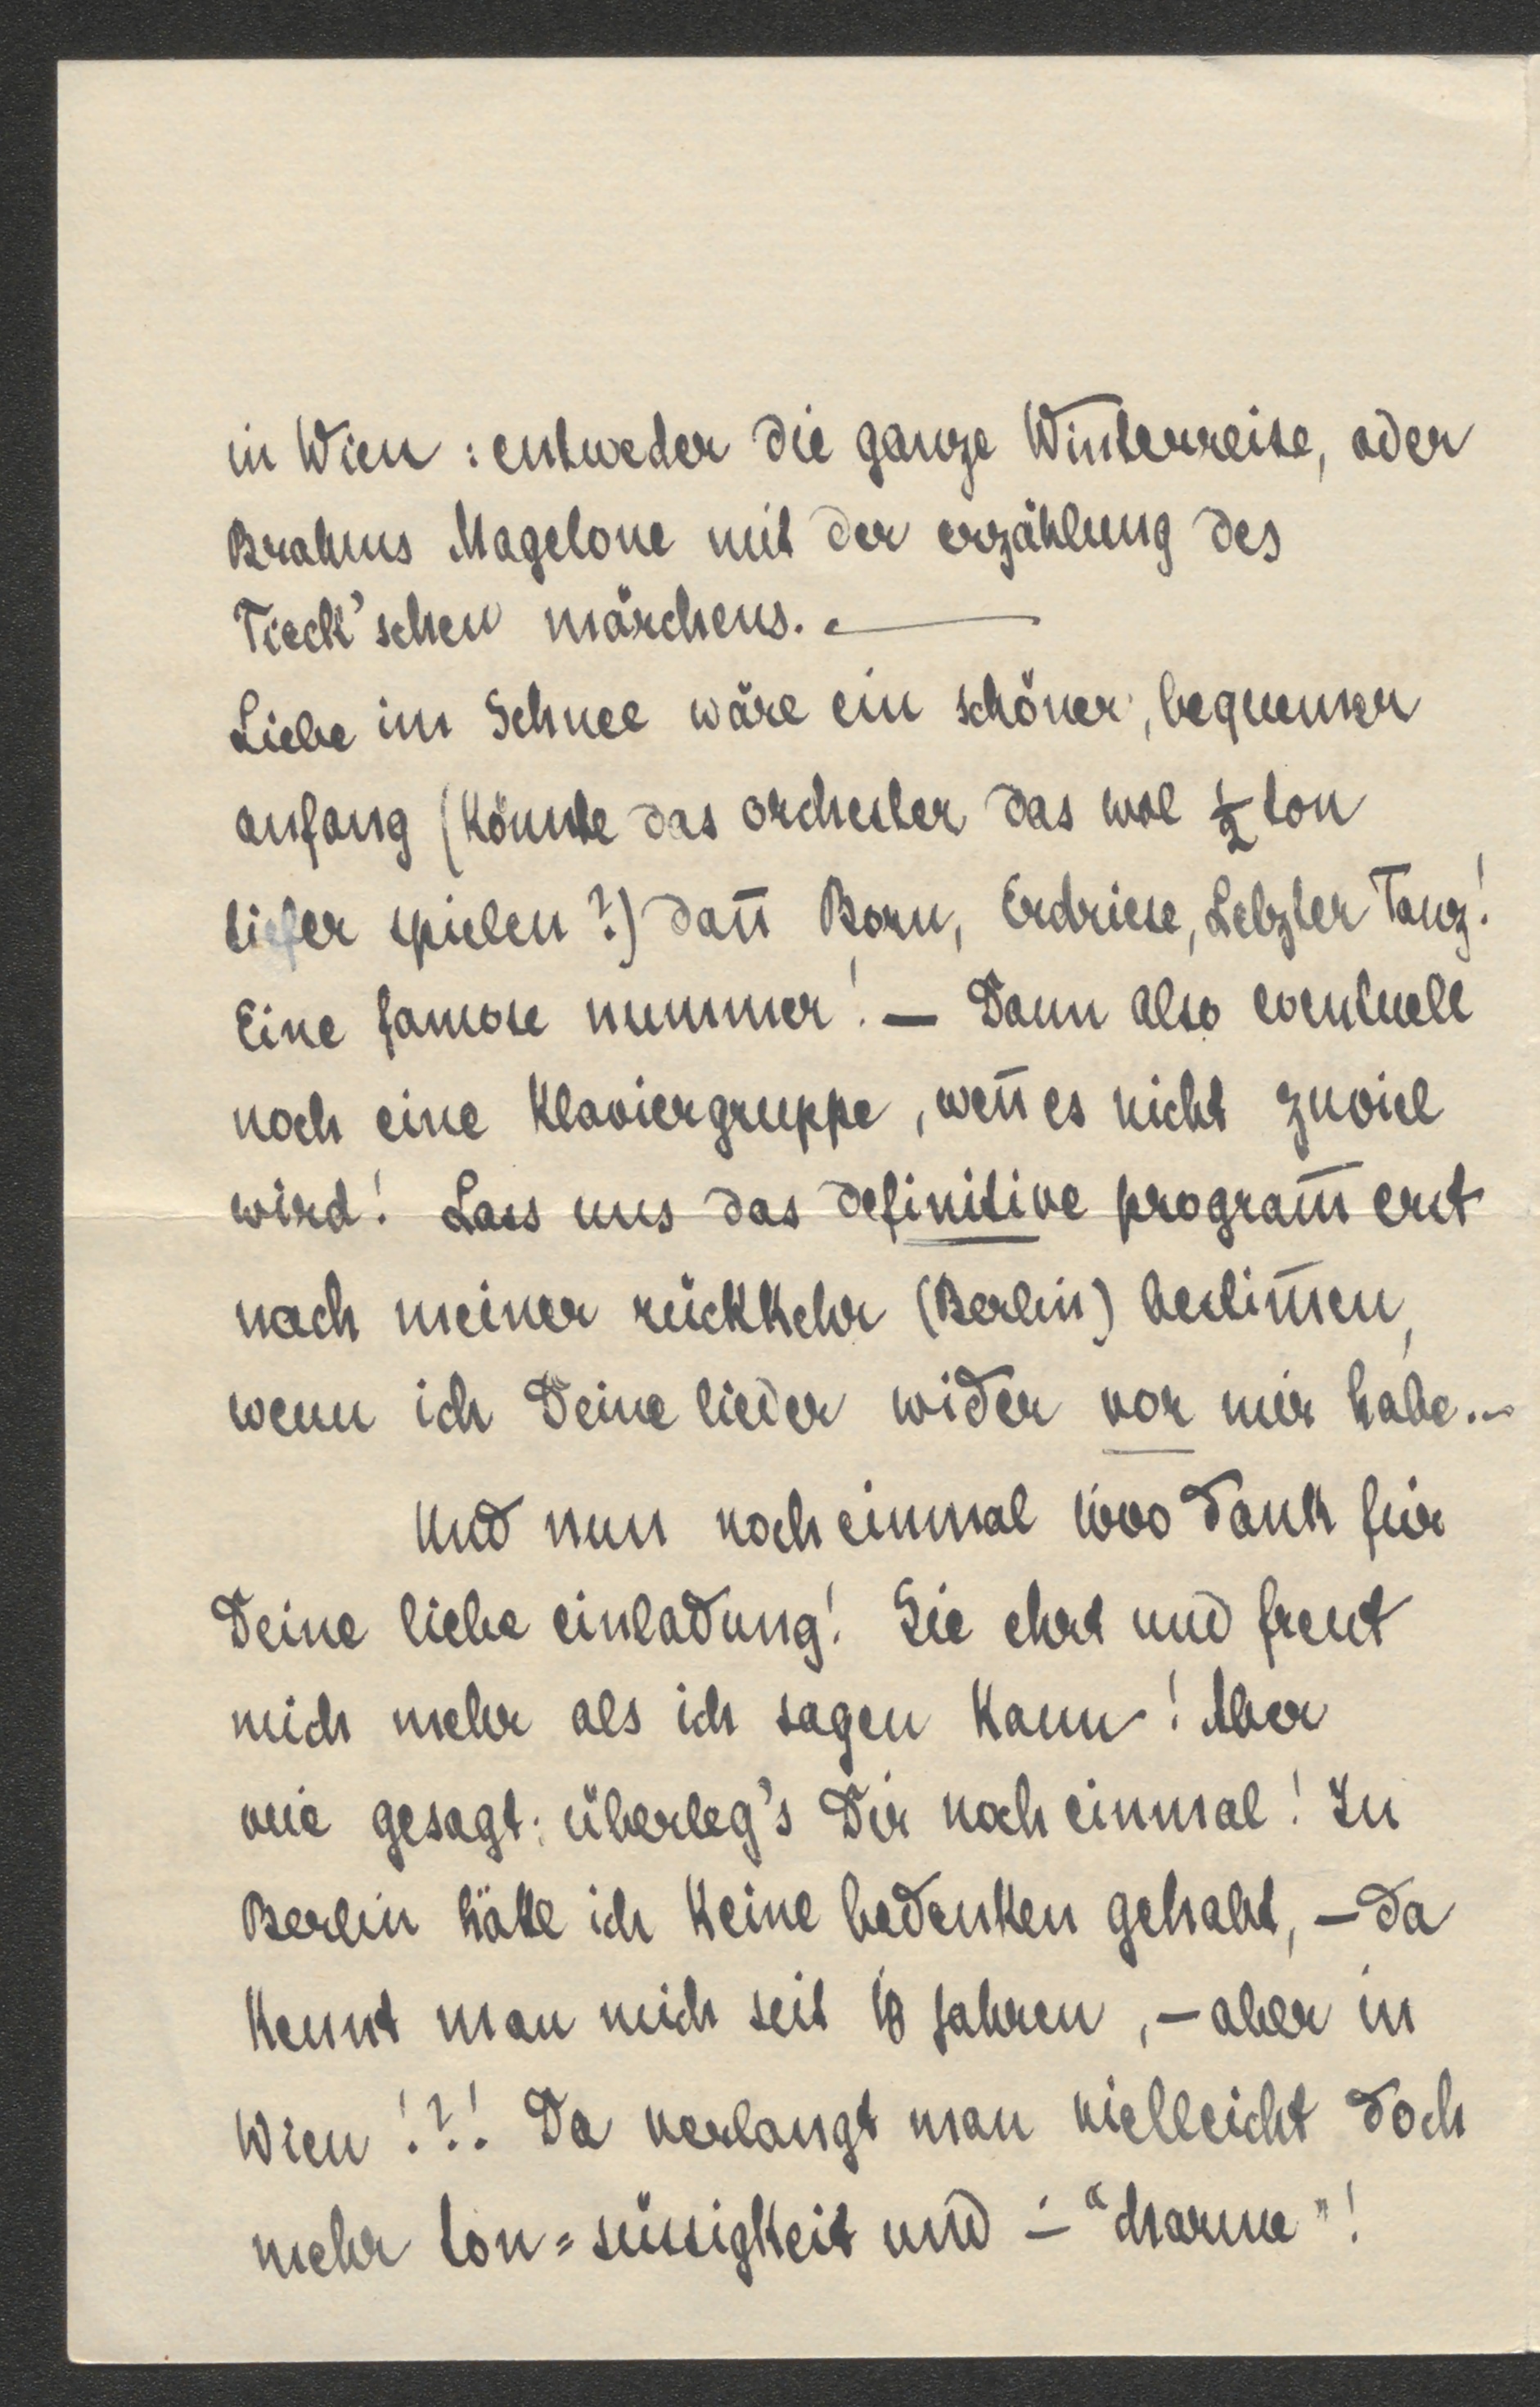 in Wien : entweder die ganze Winterreise, oder
Brahms Magelone mit der erzählung des
Tieck'schen märchens. —
Liebe im Schnee wäre ein schöner, bequemer
anfang (könnte das orchester das wol ½ ton
tiefer spielen ?) dan̄ Born, Erdriese, Letzter Tanz!
Eine famose nummer! — Dann also eventuell
noch eine Klaviergruppe, wen̄ es nicht zuviel
wird! Lass uns das definitive program̄ erst
nach meiner rückkehr (Berlin) bestim̄en,
wenn ich Deine lieder wider vor mir habe. –
Und nun noch einmal 1000 Dank für
Deine liebe einladung! Sie ehrt und freut
mich mehr als ich sagen kann! Aber
wie gesagt: überleg's Dir noch einmal! In
Berlin hätte ich keine bedenken gehabt, – da
kennt man mich seit 18 jahren, – aber in
Wien !?! Da verlangt man vielleicht doch
mehr ton=süssigkeit und – "charme"!